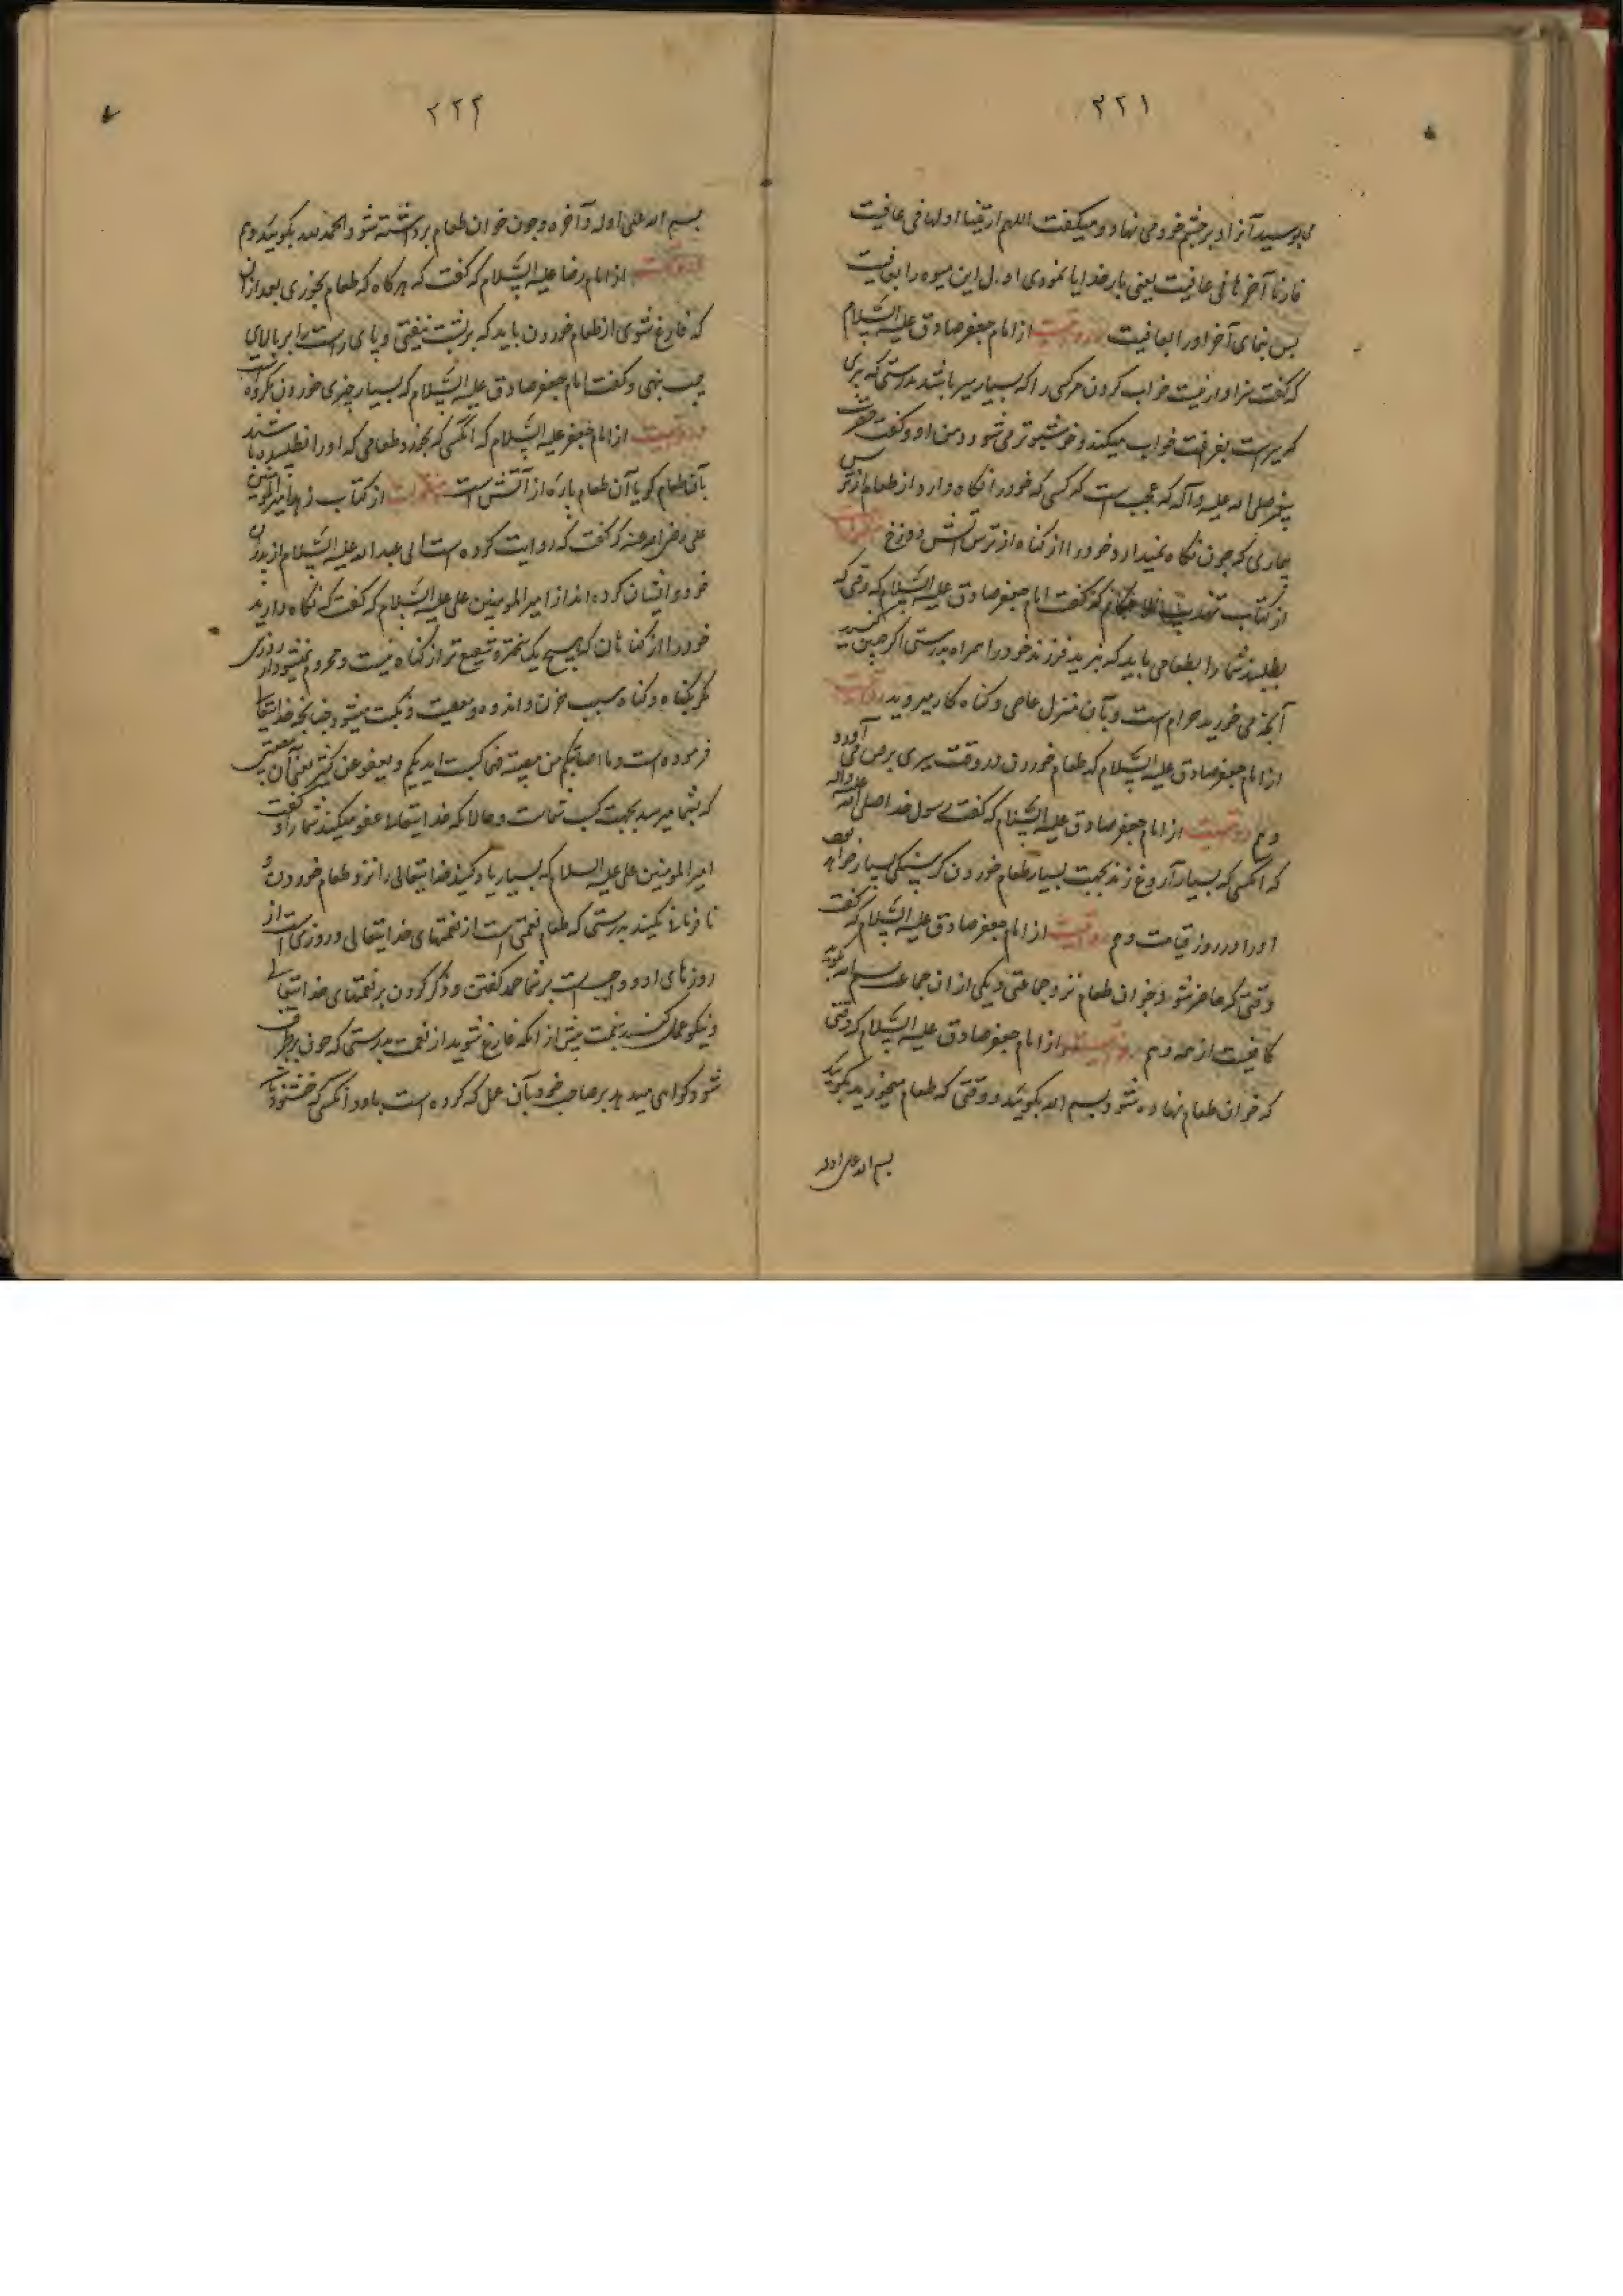 ۲۲۱
می بوسید آنرا و بر چشم خود می نهاد و میکفت اللهم اریتنا اولها فی عافیت
فارنا آخرها فی عافیت یعنی بار خدایا نمودی اول این میوه را بعافیت
پس بنمای آخر اورا بعافیت و روایتست از امام جعفر صادق علیه السلام
که کفت سزاوار نیست خراب کردن هر کسی را که بسیار سیر باشد بدرستی که
میکند و خوشبو تر می شود دهن او و کفت حضرت
پیغمبر صلی الله علیه وآله که عجب است که کسی که خود را نکاه دارد از طعام از ترس
بیماری که چون نکاه نمیدارد خود را از کناه از ترس آتش دوزخ
از کتاب تهذیب الاحکام که کفت امام جعفر صادق علیه السلام که وقتی که
بطلبند شما را بطعامی باید که نبرید فرزند خود را همراه بدرستی اگر چنین کنید
آنچه می خورید حرام است و بآن منزل عاصی و کناه کار میروید روایتست
از امام جعفر صادق علیه السلام که طعام خوردن در وقت سیری برص می آورد
و هم روایتست از امام جعفر صادق علیه السلام که کفت رسول خدا صلی الله علیه واله
که آنکسی که بسیار آروغ زند بجهت بسیار طعام خوردن کرسنکی بسیار خواهد بود
اورا در روز قیامت و هم روایتست از امام جعفر صادق علیه السلام که کفت
وقتی که حاضر شود خوان طعام نزد جماعتی و یکی از ان جماعت بسم الله بکوید
کافیست از همه و هم روایتست از امام جعفر صادق علیه السلام که وقتی
که خوان طعام نهاده شود بسم الله بکوئید و وقتی که طعام میخورید بکوئید
بسم الله علی اوله
۲۲۲
بسم الله علی اوله و آخره و چون خوان طعام برداشته شود الحمد لله بکوئید و هم
روایتست از امام رضا علیه السلام که کفت که هر کاه که طعام بخوری بعد از ان
که فارغ شوی از طعام خوردن باید که بر پشت بیفتی و پای راست را بر بالای
چپ بنهی و کفت امام جعفر صادق علیه السلام که بسیار چیزی خوردن مکروه است
روایتست از امام جعفر علیه السلام که آنکسی که بخورد طعامی که اورا نطلبیده باشند
بآن طعام کویا آن طعام پاره از آتش است از کتاب زهد امیر المؤمنین
علی رضی الله عنه که کفت که روایت کرده است ابی عبد الله علیه السلام از پدران
خود و ایشان کرده اند از امیر المومنین علی علیه السلام که کفت که نکاه دارید
خود را از کناهان که هیچ یک شنیع تر از کناه نیست و محروم نمیشود از روزی
مکر بکناه و کناه سبب حزن و اندوه و مصیبت و نکبت میشود چنانچه خدایتعالی
فرموده است و ما اصابکم من مصیبة فبما کسبت ایدیکم و یعفو عن کثیر یعنی آن مصیبتی
که بشما میرسد بجهت کسب شماست و حالانکه خدایتعالا عفو میکند شما را و کفت
امیر المومنین علی علیه السلام که بسیار یاد کنید خدایتعالی را نزد طعام خوردن و
نافرمانی نکنید بدرستی که طعام نعمتی است از نعمتهای خدایتعالی و روزیست از
روزیهای او و واجب است بر شما حمد کفتن و ذکر کردن بر نعمتهای خدایتعالی
و نیکو عمل کنید بنعمت پیش از آنکه فارغ شوید از نعمت بدرستی که چون برطرف
شود کواهی میدهد بر صاحب خود بآن عمل که کرده است باو و آنکسی که خشنود باشد